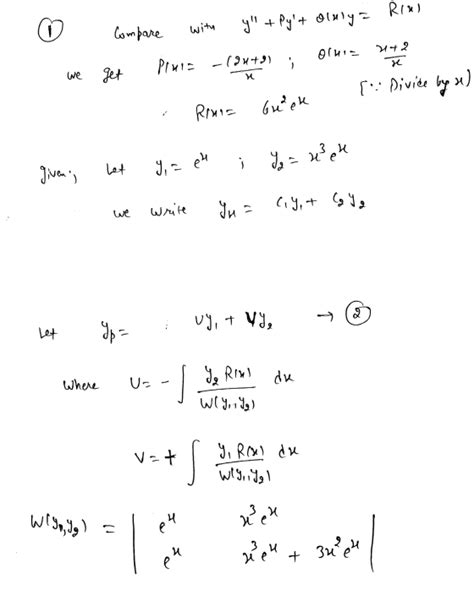 ① Compare with y'' + Py' + Q(x)y = R(x)
we get P(x) = -(2x+2)/x ; Q(x) = x+2/x
[∵ Divide by x)
R(x) = 6x²eˣ
given; Let y₁ = eˣ ; y₂ = x³eˣ
we write yₓ = C₁y₁ + C₂y₂
Let yₚ = : Uy₁ + Vy₂ → ②
where U = - ∫ y₂ R(x) / W(y₁,y₂) dx
V = + ∫ y₁ R(x) / W(y₁,y₂) dx
W(y₁,y₂) = | eˣ x³eˣ |
| eˣ x³eˣ + 3x²eˣ |